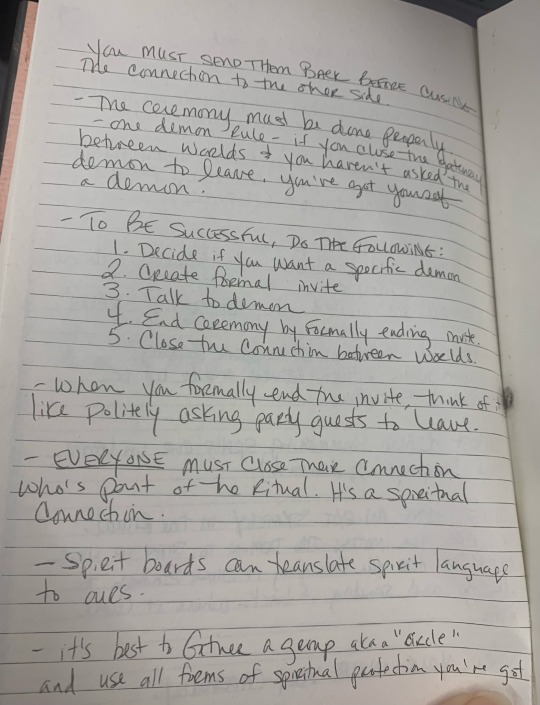 You MUST SEND THEM BACK BEFORE CLOSING
The connection to the other side
- The ceremony must be done properly
- one demon rule - if you close the gateway
between worlds & you haven't asked the
demon to leave, you've got yourself
a demon.
- TO BE SUCCESSFUL, DO THE FOLLOWING:
1. Decide if you want a specific demon
2. Create formal invite
3. Talk to demon
4. End ceremony by formally ending invite.
5. Close the connection between worlds.
- When you formally end the invite, think of it
like politely asking party guests to leave.
- EVERYONE MUST CLOSE Their Connection
who's part of the Ritual. It's a spiritual
Connection.
- Spirit boards can translate spirit language
to ours.
- it's best to Gather a group aka a "circle"
and use all forms of spiritual protection you've got